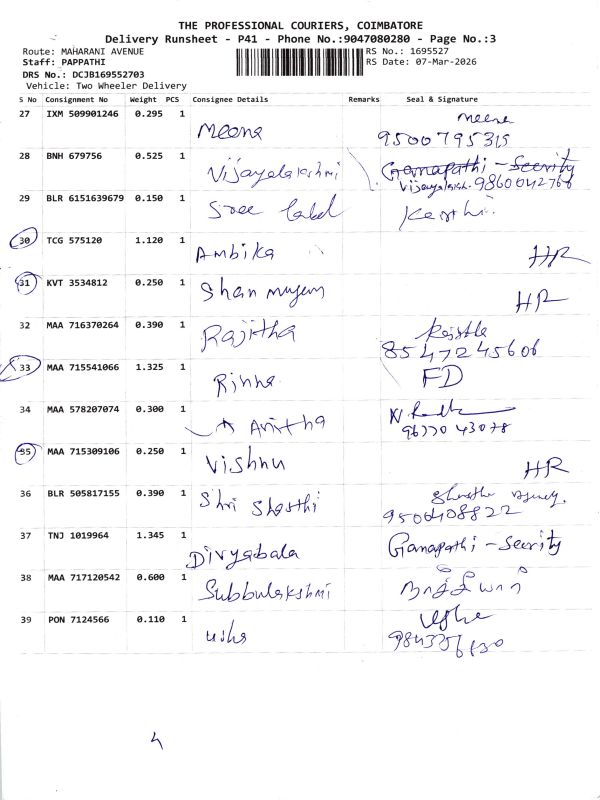 THE PROFESSIONAL COURIERS, COIMBATORE
Delivery Runsheet - P41 - Phone No.:9047080280 - Page No.:3
Route: MAHARANI AVENUE RS No.: 1695527
Staff: PAPPATHI RS Date: 07-Mar-2026
DRS No.: DCJB169552703
Vehicle: Two Wheeler Delivery
S No Consignment No Weight PCS Consignee Details Remarks Seal & Signature
27 IXM 509901246 0.295 1 Meena Meena
9500795315
28 BNH 679756 0.525 1 Vijayalakshmi Ganapathi - Seerity
Vijayalaksh. 9860042768
29 BLR 6151639679 0.150 1 Sree label
30 TCG 575120 1.120 1 Ambika HR
31 KVT 3534812 0.250 1 Shanmugam HR
32 MAA 716370264 0.390 1 Rajitha
8547245606
33 MAA 715541066 1.325 1 Rinna FD
34 MAA 578207074 0.300 1 Anitha
9677043078
35 MAA 715309106 0.250 1 Vishnu HR
36 BLR 505817155 0.390 1 Shri Shasthi
9500408822
37 TNJ 1019964 1.345 1 Divyabala Ganapathi - Seerity
38 MAA 717120542 0.600 1 Subbulakshmi
39 PON 7124566 0.110 1 usha Usha
4